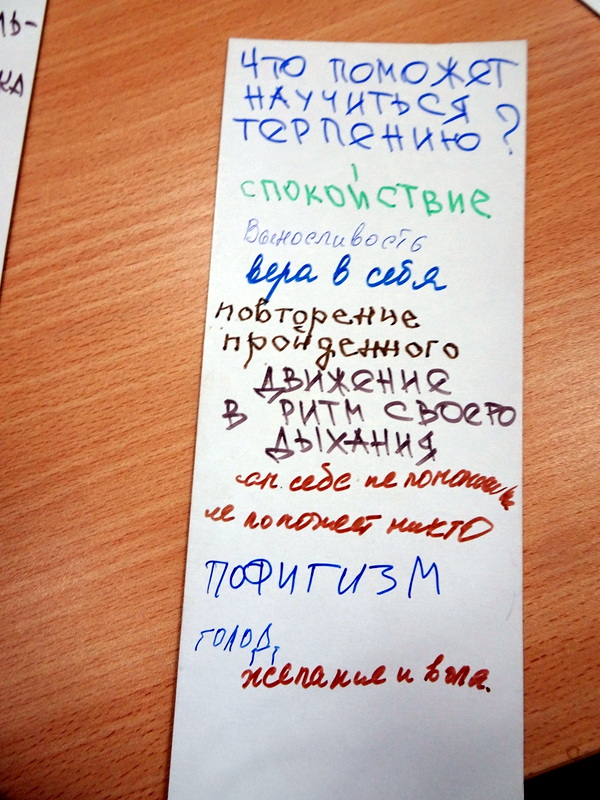 ЛЬ-
КА
ЧТО ПОМОЖЕТ
НАУЧИТЬСЯ
ТЕРПЕНИЮ?
СПОКОЙСТВИЕ
Выносливость
вера в себя
повторение
пройденного
ДВИЖЕНИЕ
В РИТМ СВОЕГО
ДЫХАНИЯ
сам себе не поможешь
не поможет никто
ПОФИГИЗМ
ГОЛОД,
желание и воля.